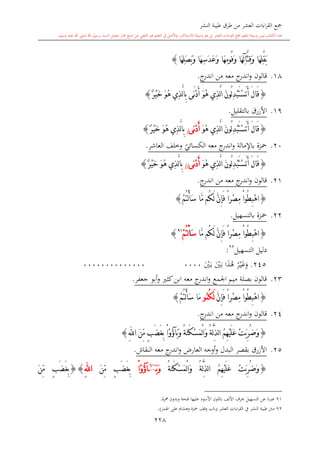 جمع القراءات العشر من طرق طيبة النشر
﴿ بَقْلِهَا وَقِثَّآئِهَا وَفُومِهَا وَعَدَسِهَا وَبَصَلِهَا ﴾
١٨. قالون واندرج معه من اندرج.
﴿ قَالَ أَتَسْتَبْدِلُونَ الَّذِي هُوَ أَدْنَى بِالَّذِي هُوَ خَيْرٌ ﴾
١٩. الأزرق بالتقليل.
﴿ قَالَ أَتَسْتَبْدِلُونَ الَّذِي هُوَ أَدْنَى بِالَّذِي هُوَ خَيْرٌ ﴾
٢٠. حمزة بالإمالة واندرج معه الكسائيّ وخلف العاشر.
﴿ قَالَ أَتَسْتَبْدِلُونَ الَّذِي هُوَ أَدْنَى بِالَّذِي هُوَ خَيْرٌ ﴾
٢١. قالون واندرج معه من اندرج.
﴿ اهْبِطُوا مِصْراً فَإِنَّ لَكُم مَّا سَأَلْتُمْ ﴾
٢٢. حمزة بالتسهيل.
﴿ اهْبِطُوا مِصْراً فَإِنَّ لَكُم مَّا سَأَلْتُمْ ﴾٩١
دليل التسهيل٩٢:
٢٤٥. وَغَيْرُ هَذَا بَيْنَ بَيْنَ ٠٠٠٠ ٠٠٠٠٠٠٠٠٠٠٠٠٠٠
٢٣. قالون بصلة ميم الجمع واندرج معه ابن كثير وأبو جعفر.
﴿ اهْبِطُوا مِصْراً فَإِنَّ لَكُمُ مَا سَأَلْتُمْ ﴾
٢٤. قالون واندرج معه من اندرج.
﴿ وَضُرِبَتْ عَلَيْهِمُ الذِّلَّةُ وَالْمَسْكَنَةُ وَبَآؤُوْا بِغَضَبٍ مِّنَ اللَّهِ ﴾
٢٥. الأزرق بقصر البدل وأوجه العارض واندرج معه النقاش.
﴿ وَضُرِبَتْ عَلَيْهِمُ الذِّلَّةُ وَالْمَسْكَنَةُ وَبَآؤُوْا بِغَضَبٍ مِّنَ اللهِ ﴾ ﴿ بِغَضَبٍ مِّنَ
٩٢ متن طيبة النشر في القراءات العشر وباب وقف حمزة وهشام على الهمز.
٢٢٨